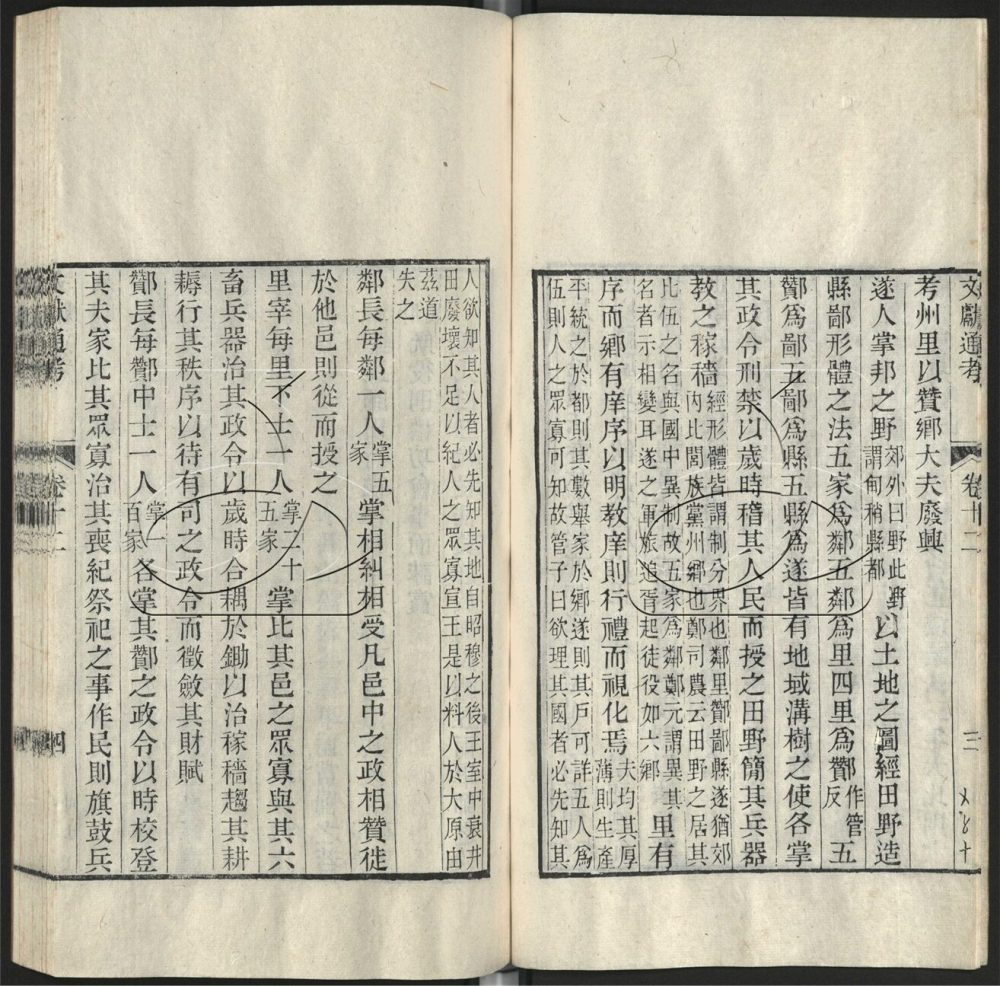 文獻通考 卷十二 三
考州里以贊鄉大夫廢興
遂人掌邦之野郊外曰野此野謂甸稍縣都以土地之圖經田野造
縣鄙形體之法五家爲鄰五鄰爲里四里爲酇作管反五
酇爲鄙五鄙爲縣五縣爲遂皆有地域溝樹之使各掌
其政令刑禁以歲時稽其人民而授之田野簡其兵器
教之稼穡經形體皆謂制分界也鄰里酇鄙縣遂猶郊內比閭族黨州鄉也鄭司農云田野之居其
比伍之名與國中異制故五家爲鄰鄭元謂異其名者示相變耳遂之軍旅追胥起徒役如六鄉里有
序而鄉有庠序以明教庠則行禮而視化焉夫均其厚薄則生產
平統之於都則其數舉家於鄉遂則其戶可詳五人爲伍則人之眾寡可知故管子曰欲理其國者必先知其
人欲知其人者必先知其地自昭穆之後王室中衰井田廢壞不足以紀人之眾寡宣王是以料人於大原由
茲道失之
鄰長每鄰一人掌五家掌相糾相受凡邑中之政相贊徙
於他邑則從而授之
里宰每里下士一人掌二十五家掌比其邑之眾寡與其六
畜兵器治其政令以歲時合耦於鋤以治稼穡趨其耕
耨行其秩序以待有司之政令而徵斂其財賦
酇長每酇中士一人掌一百家各掌其酇之政令以時校登
其夫家比其眾寡治其喪紀祭祀之事作民則旗鼓兵
文獻通考 卷十二 四